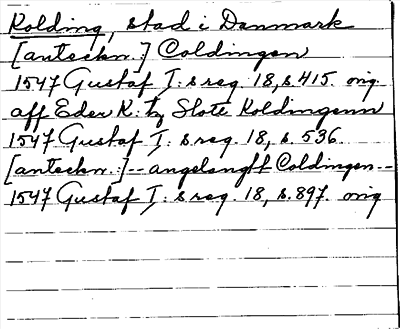 Kolding, stad i Danmark
[anteckn.:] Coldingen
1547 Gustaf I: s reg. 18, s. 415. orig.
aff Eder K: tz Slott Koldingenn
1547 Gustaf I: s reg. 18, s. 536.
[anteckn.:] -- angelengtt Coldingen --
1547 Gustaf I: s reg. 18, s. 897. orig